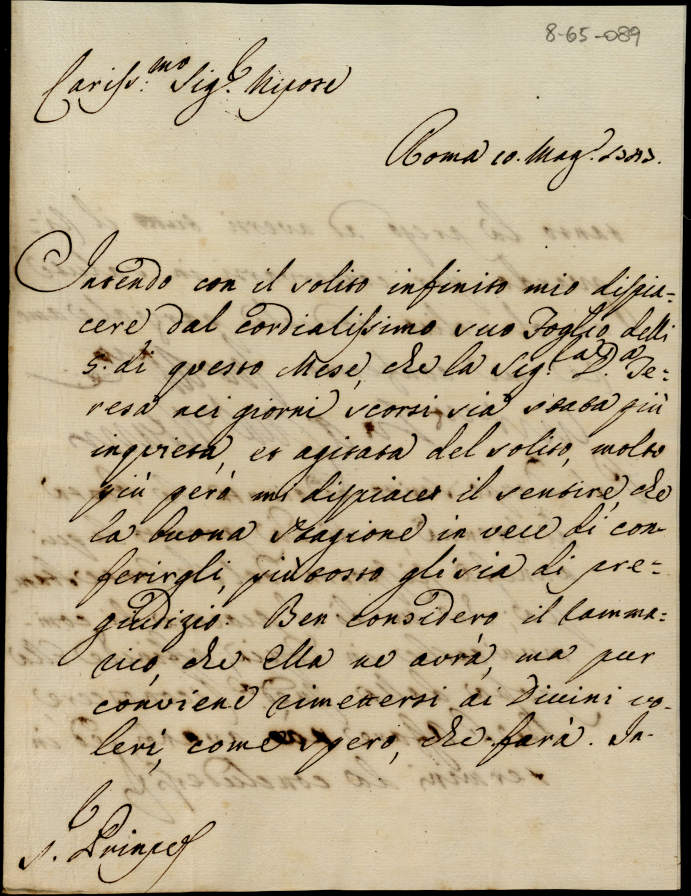 8-65-089
Cariss.mo Sig.r Nipote
Roma 10. Mag.o
Intendo con il solito infinito mio dispia=
cere dal cordialissimo suo Foglio delli
5. di questo Mese, che la Sig.ra D.a Te=
resa nei giorni scorsi sia stata più
inquieta, et agitata del solito, molto
più però mi dispiace il sentire, che
la buona stagione in vece di con
ferirgli, più tosto gli sia di pre=
giudizio. Ben considero il Ramma=
rico, che Ella ne avrà, ma pur
conviene rimettersi ai Divini vo-
leri, come spero, che farà. In-
S.r Principe